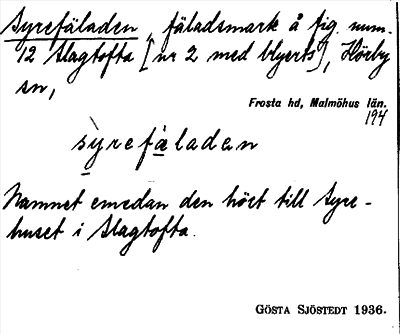 Syrefäladen, fäladsmark å fig. num-
12 Slagtofta [nr 2 med blyerts], Hörby
sn,
Frosta hd, Malmöhus län.
194
sỳrefäladen
Namnet emedan den hört till Syre-
huset i Slagtofta.
GÖSTA SJÖSTEDT 1936.